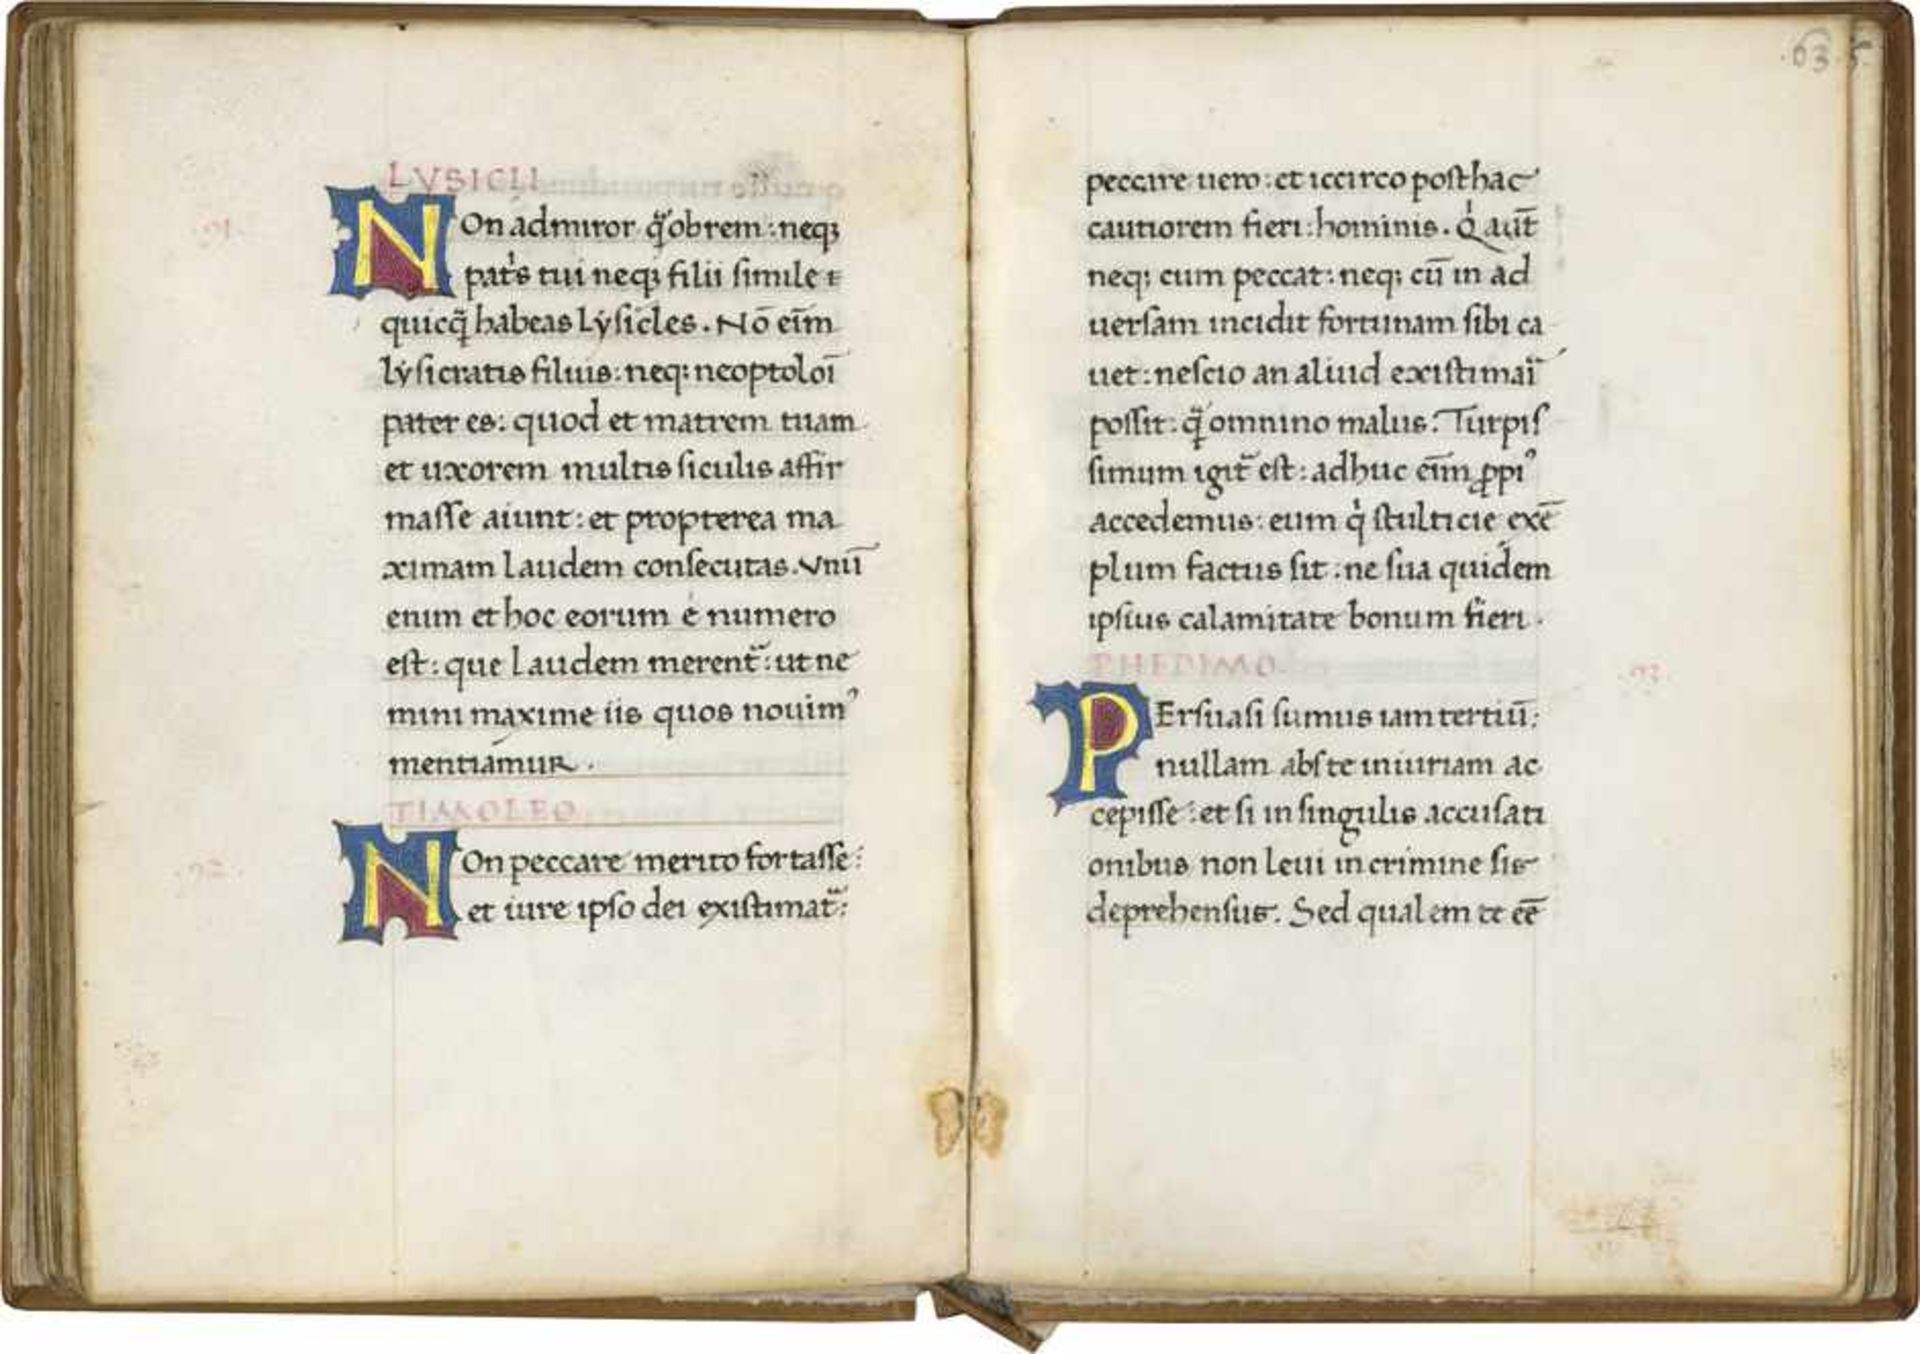 LYSICLI
.91.
NOn admiror q̃obrem: neq3
pat's tui neq3 filii simile
quicq̃ habeas Lẏsicles. Nō eīm
lẏsicratis filius: neq3 neoptoloī
pater es: quod et matrem tuam
et uxorem multis siculis affir
masse aiunt: et propterea ma
ximam laudem consecutas. Vnū
enim et hoc eorum e numero
est: que laudem merent̃: ut ne
mini maxime iis quos nouim᾽
mentiamur.
TIMOLEO
.92.
NOn peccare merito fortasse:
et iure ipso dei existimat̃:
.63.
peccare uero: et iccirco posthac
cautiorem fieri: hominis. Q' aūt
neq3 cum peccat: neq3 cū in ad
uersam incidit fortunam sibi ca
uet: nescio an aliud existimai᷈
possit: q̃ omnino malus: Turpis
simum igit̃ est: adhuc eīm ꝓpi᾽
accedemus: eum q' stulticie exē
plum factus sit: ne sua quidem
ipsius calamitate bonum fieri.
PHEDIMO
.93.
PErsuasi sumus iam tertiū:
nullam abs te iniuriam ac
cepisse: et si in singulis accusati
onibus non leui in crimine sis
deprehensus. Sed qualem te eē